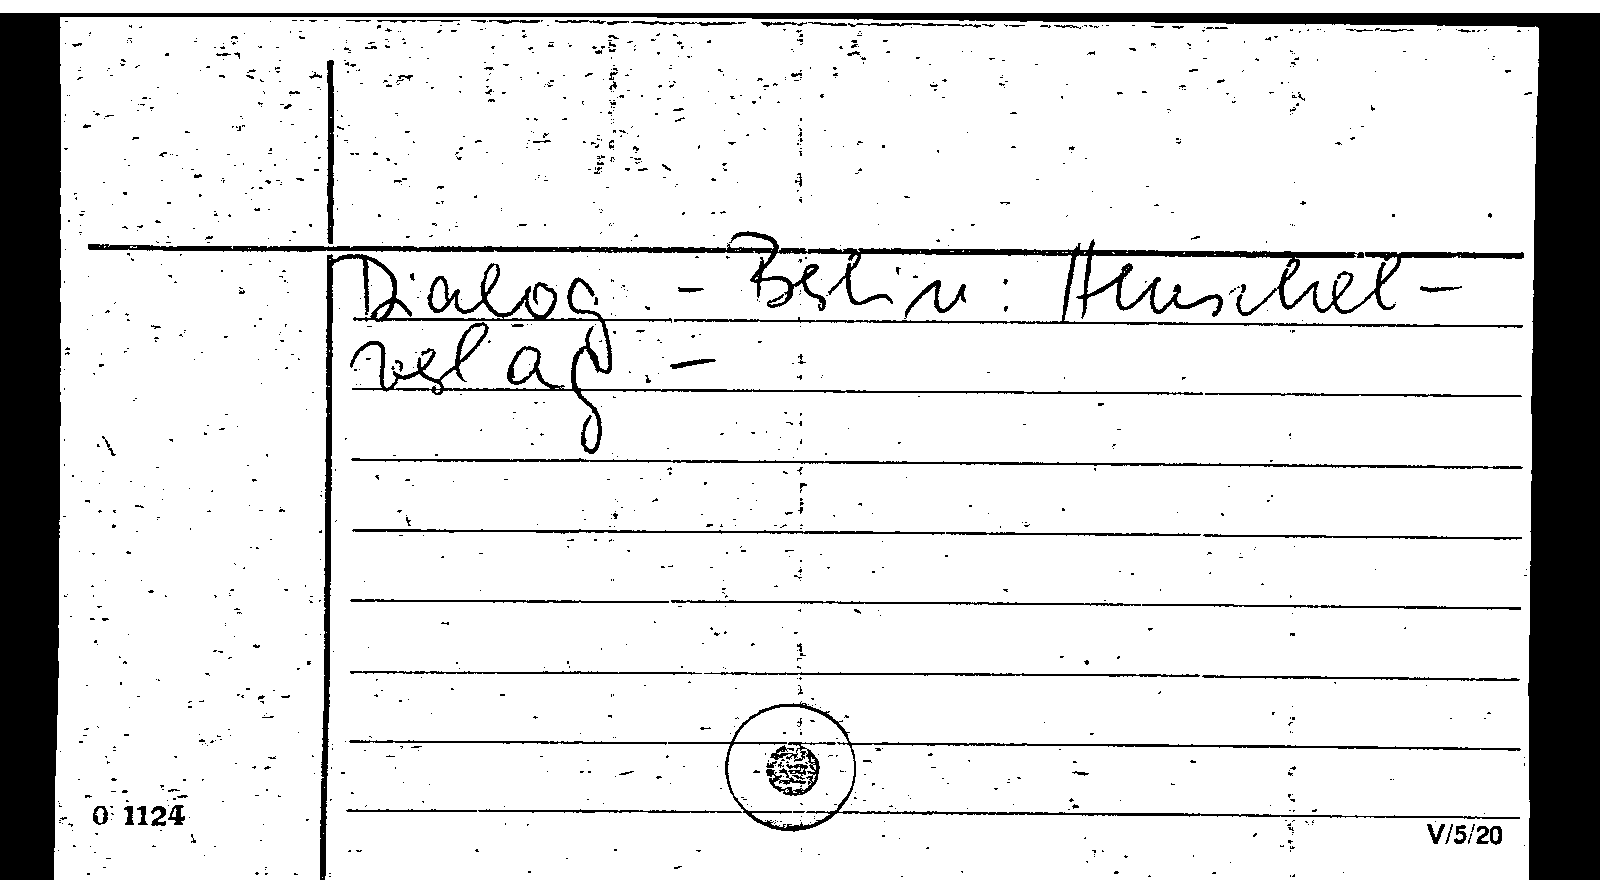 Dialog. - Berlin: Henschel-
verlag. -
0 1124
V/5/20